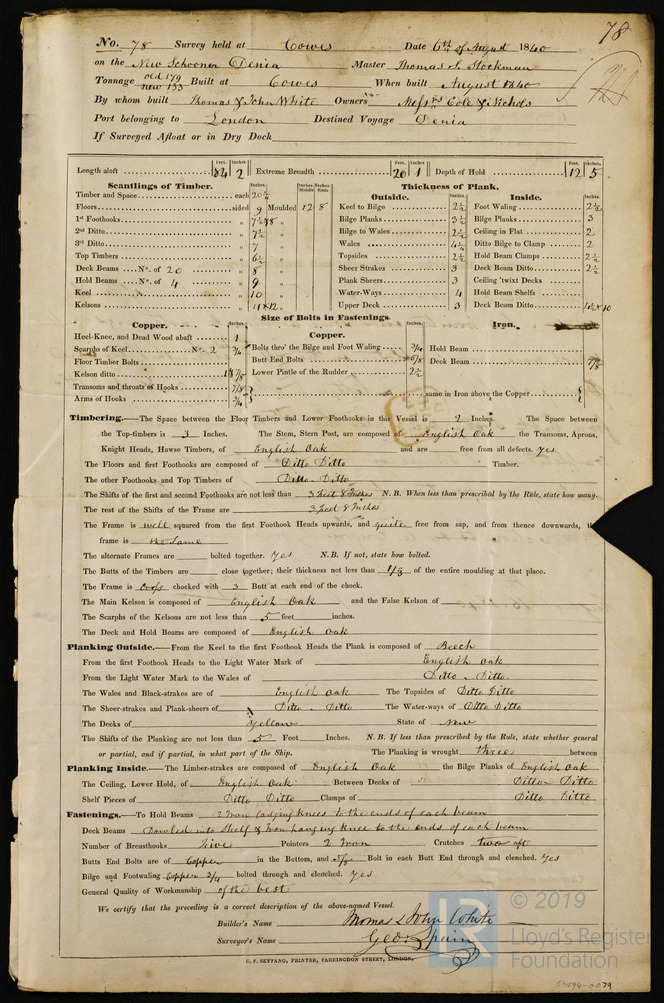 78
No. 78 Survey held at Cowes Date 6th of August 1840
on the New Schooner Denia Master Thomas S. Stockman
Tonnage old 179 new 153 Built at Cowes When built August 1840
By whom built Thomas & John White Owners Messrs Cole & Nichols
Port belonging to London Destined Voyage Denia
If Surveyed Afloat or in Dry Dock
Length aloft Feet. 84 Inches 2 Extreme Breadth Feet. 20 Inches 1 Depth of Hold Feet. 12 Inches 5
Scantlings of Timber.
Inches. Inches Middle Inches Ends
Timber and Space each 20
Floors sided 9 Moulded 12 8
1st Foothooks "
2nd Ditto " 7½
3rd Ditto " 7
Top Timbers " 6½
Deck Beams No. of 20 " 8
Hold Beams No. of 4 " 9
Keel " 10
Kelsons " 11 × 12
Thickness of Plank.
Outside. Inches.
Keel to Bilge 2½
Bilge Planks 3½
Bilge to Wales 2½
Wales 4½
Topsides 2½
Sheer Strakes 3
Plank Sheers 3
Water-Ways 4
Upper Deck 3
Inside. Inches.
Foot Waling 2½
Bilge Planks 3
Ceiling in Flat 2
Ditto Bilge to Clamp 2
Hold Beam Clamps 2½
Deck Beam Ditto 2½
Ceiling 'twixt Decks
Hold Beam Shelfs
Deck Beam Ditto × 10
Size of Bolts in Fastenings.
Copper. Inches.
Heel-Knee, and Dead Wood abaft 1
Scarphs of Keel No. 2 ¾
Floor Timber Bolts
Kelson ditto 7/8
Transoms and throats of Hooks 7/8
Arms of Hooks ¾
Copper. Inches.
Bolts thro' the Bilge and Foot Waling ¾
Butt End Bolts 5/8
Lower Pintle of the Rudder 2½
Iron. Inches.
Hold Beam
Deck Beam 7/8
same in Iron above the Copper
Timbering.—The Space between the Floor Timbers and Lower Foothooks in this Vessel is 2 Inches. The Space between
the Top-timbers is 3 Inches. The Stem, Stern Post, are composed of English Oak the Transoms, Aprons,
Knight Heads, Hawse Timbers, of English Oak and are free from all defects. yes
The Floors and first Foothooks are composed of Ditto Ditto Timber.
The other Foothooks and Top Timbers of Ditto Ditto
The Shifts of the first and second Foothooks are not less than 3 feet 8 Inches N.B. When less than prescribed by the Rule, state how many.
The rest of the Shifts of the Frame are 3 feet 8 Inches
The Frame is well squared from the first Foothook Heads upwards, and quite free from sap, and from thence downwards, the
frame is the same
The alternate Frames are bolted together. yes N.B. If not, state how bolted.
The Butts of the Timbers are close together; their thickness not less than 1/3 of the entire moulding at that place.
The Frame is Cross chocked with 3 Butt at each end of the chock.
The Main Kelson is composed of English Oak and the False Kelson of
The Scarphs of the Kelsons are not less than 5 feet inches.
The Deck and Hold Beams are composed of English Oak
Planking Outside.—From the Keel to the first Foothook Heads the Plank is composed of Beech
From the first Foothook Heads to the Light Water Mark of English Oak
From the Light Water Mark to the Wales of Ditto - Ditto
The Wales and Black-strakes are of English Oak The Topsides of Ditto Ditto
The Sheer-strakes and Plank-sheers of Ditto - Ditto The Water-ways of Ditto Ditto
The Decks of Yellow State of New
The Shifts of the Planking are not less than 5 Feet Inches. N.B. If less than prescribed by the Rule, state whether general
or partial, and if partial, in what part of the Ship. The Planking is wrought three between
Planking Inside.—The Limber-strakes are composed of English Oak the Bilge Planks of English Oak
The Ceiling, Lower Hold, of English Oak Between Decks of Ditto Ditto
Shelf Pieces of Ditto Ditto Clamps of Ditto Ditto
Fastenings.—To Hold Beams 2 Iron lodging Knees to the ends of each beam
Deck Beams Dowled into Shelf & Iron hanging Knee to the ends of each beam
Number of Breasthooks five Pointers 2 Iron Crutches two aft
Butts End Bolts are of Copper in the Bottom, and 5/8 Bolt in each Butt End through and clenched. Yes
Bilge and Footwaling Copper ¾ bolted through and clenched. Yes
General Quality of Workmanship of the best
We certify that the preceding is a correct description of the above-named Vessel.
Builder's Name Thomas & John White
Surveyor's Name Geo: Spain
C. F. SEYFANG, PRINTER, FARRINGDON STREET, LONDON.
LR © 2019
Lloyd's Register
Foundation